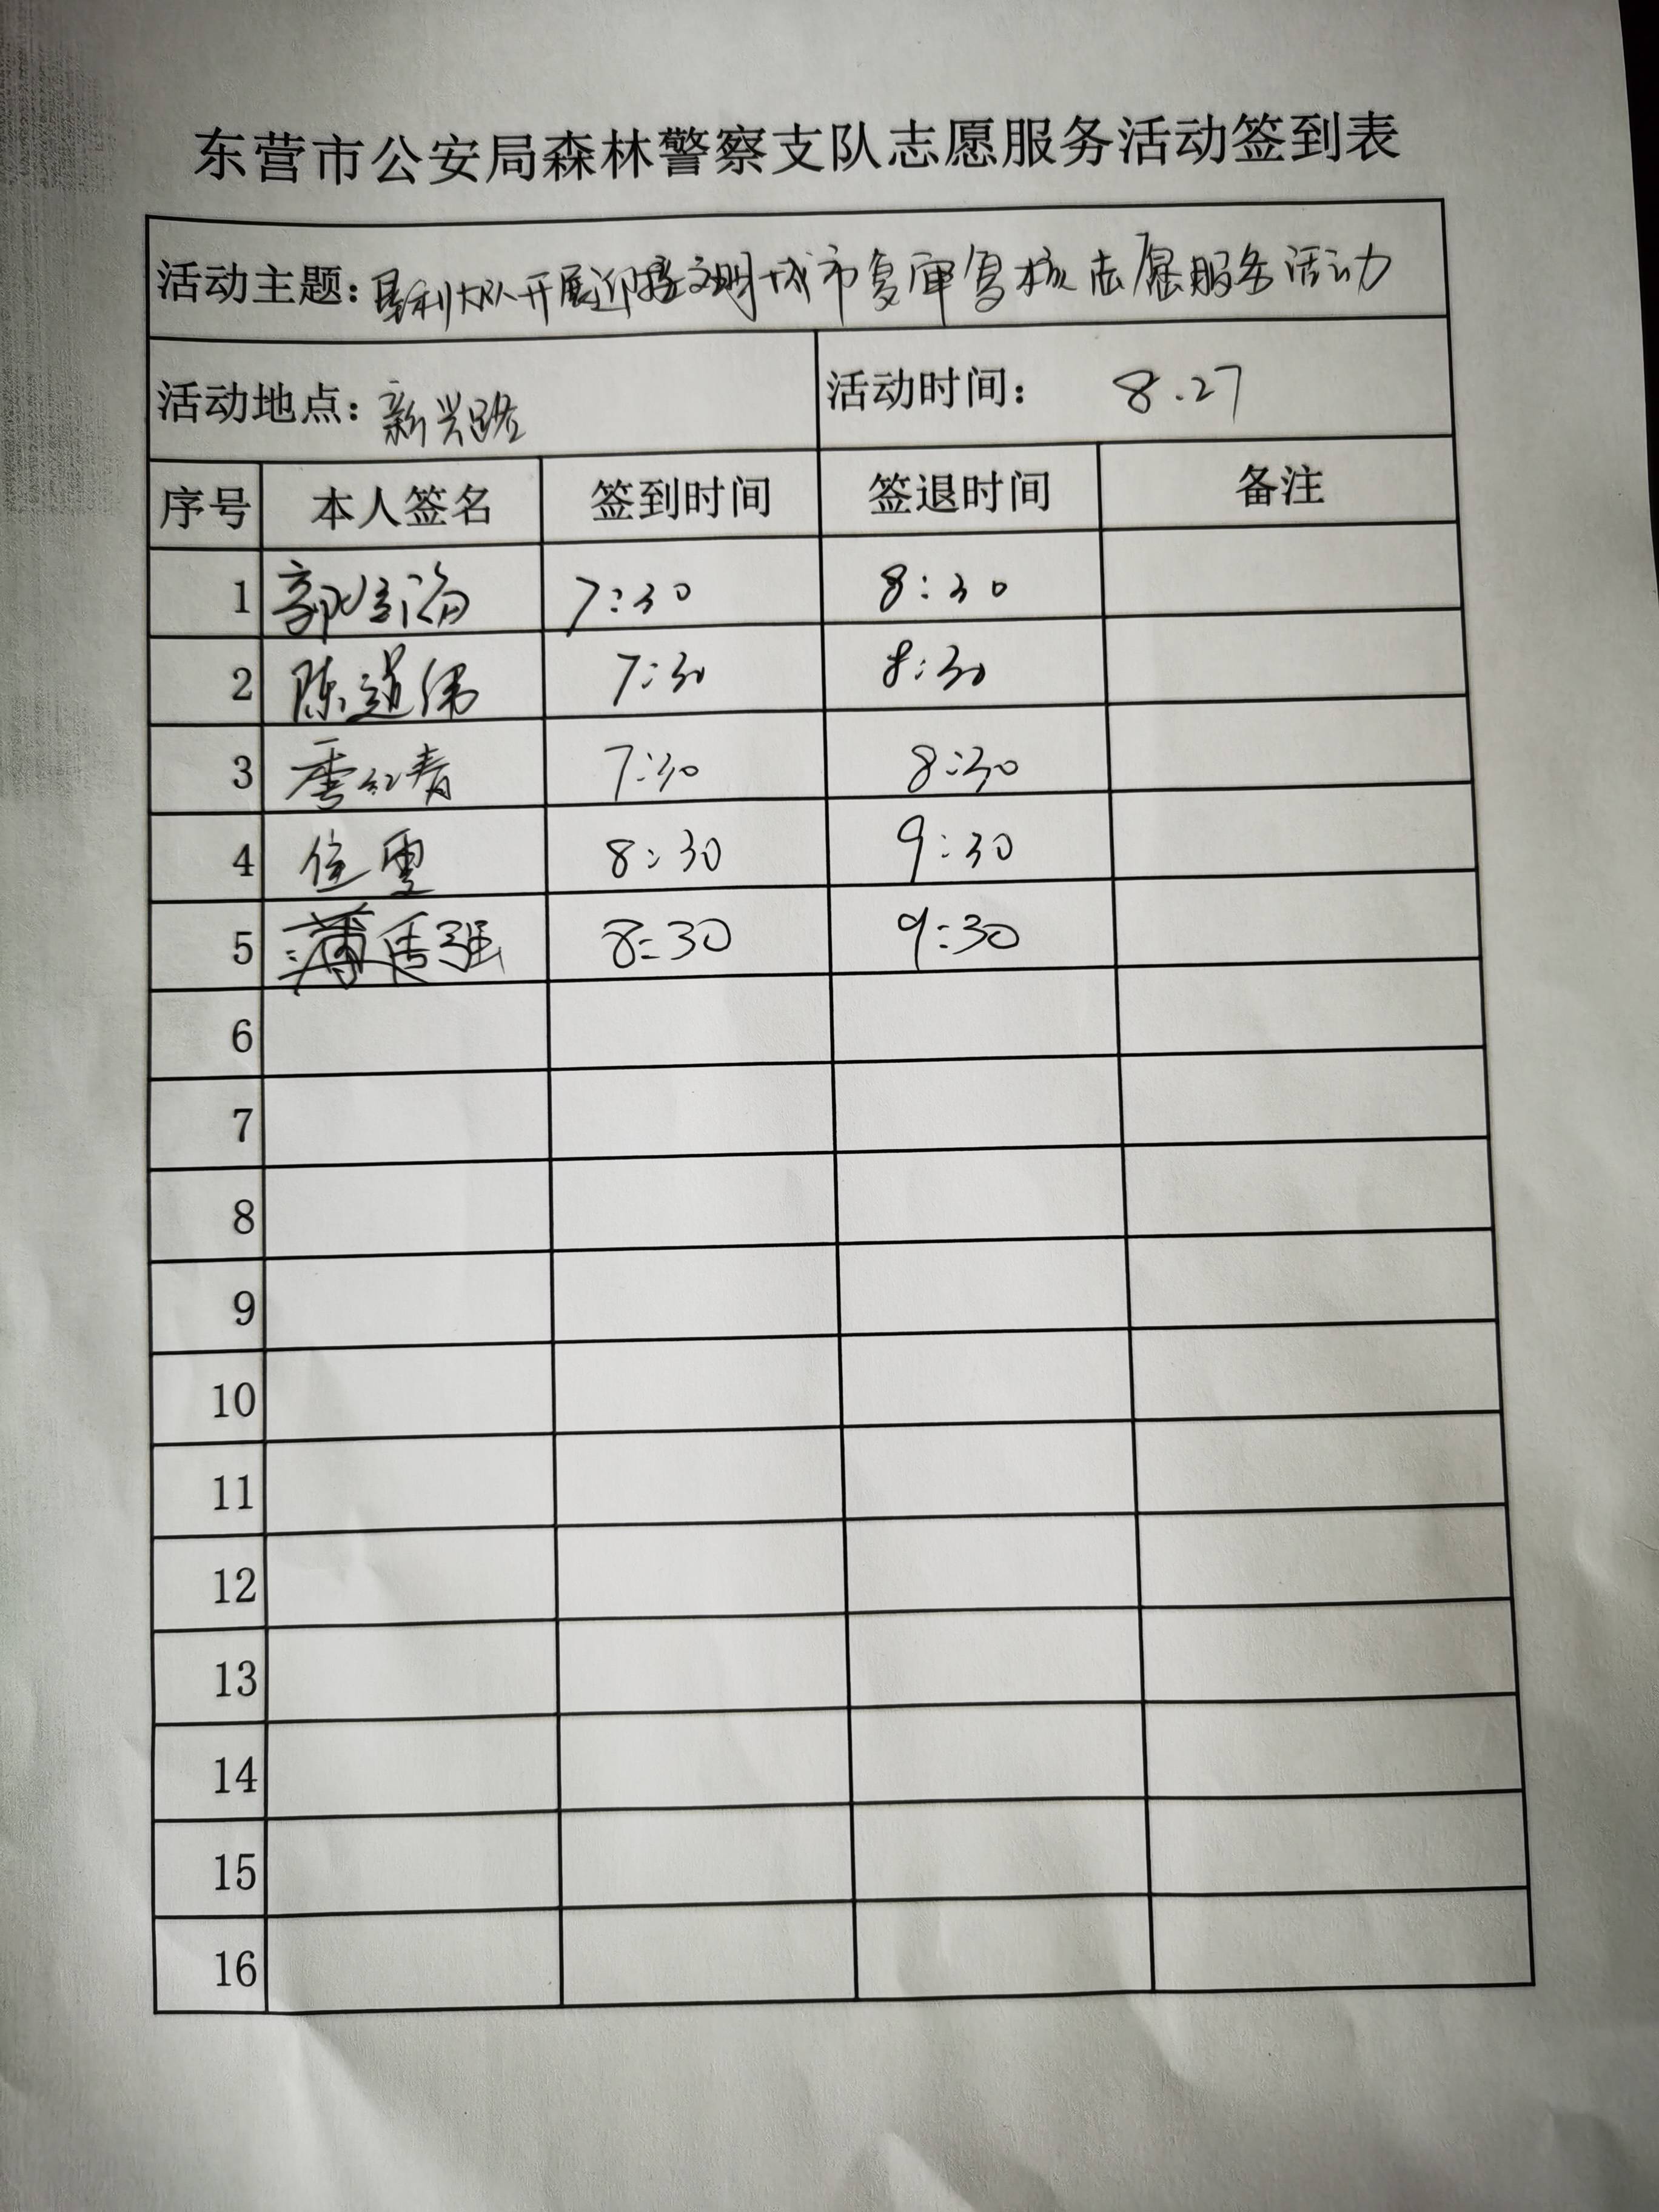 东营市公安局森林警察支队志愿服务活动签到表
活动主题：垦利大队开展迎接文明城市复审复核志愿服务活动
活动地点：新兴路 活动时间： 8.27
序号 本人签名 签到时间 签退时间 备注
1 郭 海 7:30 8:30
2 陈道伟 7:30 8:30
3 季红青 7:30 8:30
4 8:30 9:30
5 薄 强 8:30 9:30
6
7
8
9
10
11
12
13
14
15
16